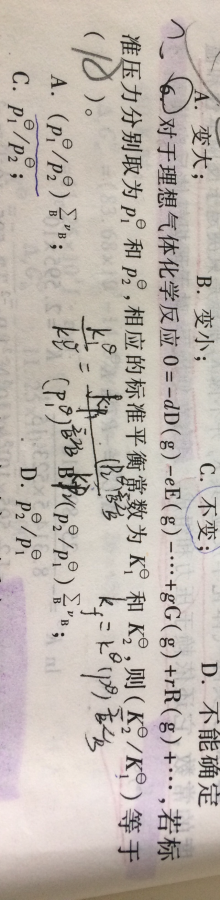 A. 变大; B. 变小; C. 不变; D. 不能确定
6. 对于理想气体化学反应 0=-dD(g)-eE(g)-…+gG(g)+rR(g)+…,若标
准压力分别取为 p₁^⊖ 和 p₂^⊖,相应的标准平衡常数为 K₁^⊖ 和 K₂^⊖,则(K₂^⊖/K₁^⊖)等于
( )。
A. (p₁^⊖/p₂^⊖)^{∑_B ν_B}; B. (p₂^⊖/p₁^⊖)^{∑_B ν_B};
C. p₁^⊖/p₂^⊖; D. p₂^⊖/p₁^⊖